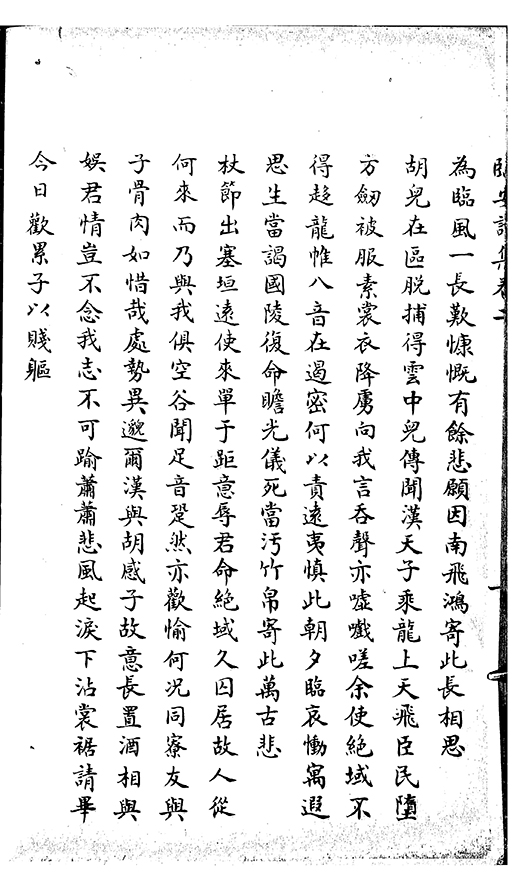 為臨風一長歎慷慨有餘悲願因南飛鴻寄此長相思
胡兒在區脫捕得雲中兒傳聞漢天子乘龍上天飛臣民墮
方劒被服素裳衣降虜向我言吞聲亦噓嚱嗟余使絕域不
得趍龍帷八音在遏密何以責遠夷慎此朝夕臨哀慟寫遐
思生當謁國陵復命瞻光儀死當汚竹帛寄此萬古悲
杖節出塞垣遠使來單于距意辱君命絕域久囚居故人從
何來而乃與我俱空谷聞足音跫然亦歡愉何況同寮友與
子骨肉如惜哉處勢異邈爾漢與胡感子故意長置酒相與
娛君情豈不念我志不可踰蕭蕭悲風起淚下沾裳裾請畢
今日歡累子以賤軀